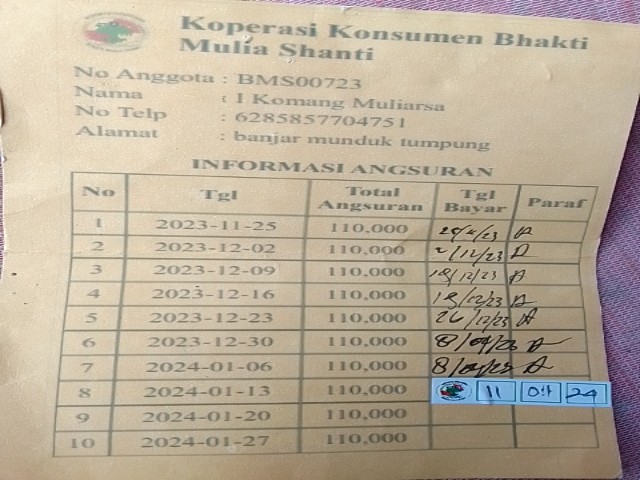 Koperasi Konsumen Bhakti
Mulia Shanti
No Anggota : BMS00723
Nama : I Komang Muliarsa
No Telp : 6285857704751
Alamat : banjar munduk tumpung
INFORMASI ANGSURAN
No Tgl Total Angsuran Tgl Bayar Paraf
1 2023-11-25 110,000
2 2023-12-02 110,000 2/12/23
3 2023-12-09 110,000 18/12/23
4 2023-12-16 110,000 18/12/23
5 2023-12-23 110,000 26/12/23
6 2023-12-30 110,000
7 2024-01-06 110,000
8 2024-01-13 110,000 11 24
9 2024-01-20 110,000
10 2024-01-27 110,000